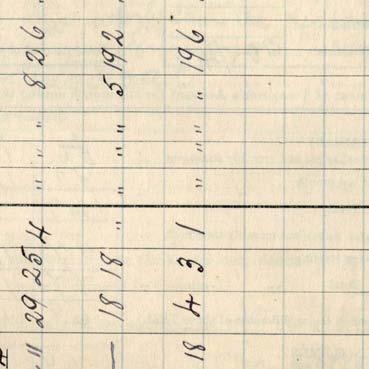 " 29 25 4 " " " 8 2 6
— 18 18 " " " " 5 19 2
18 4 3 1 " " " " 19 6